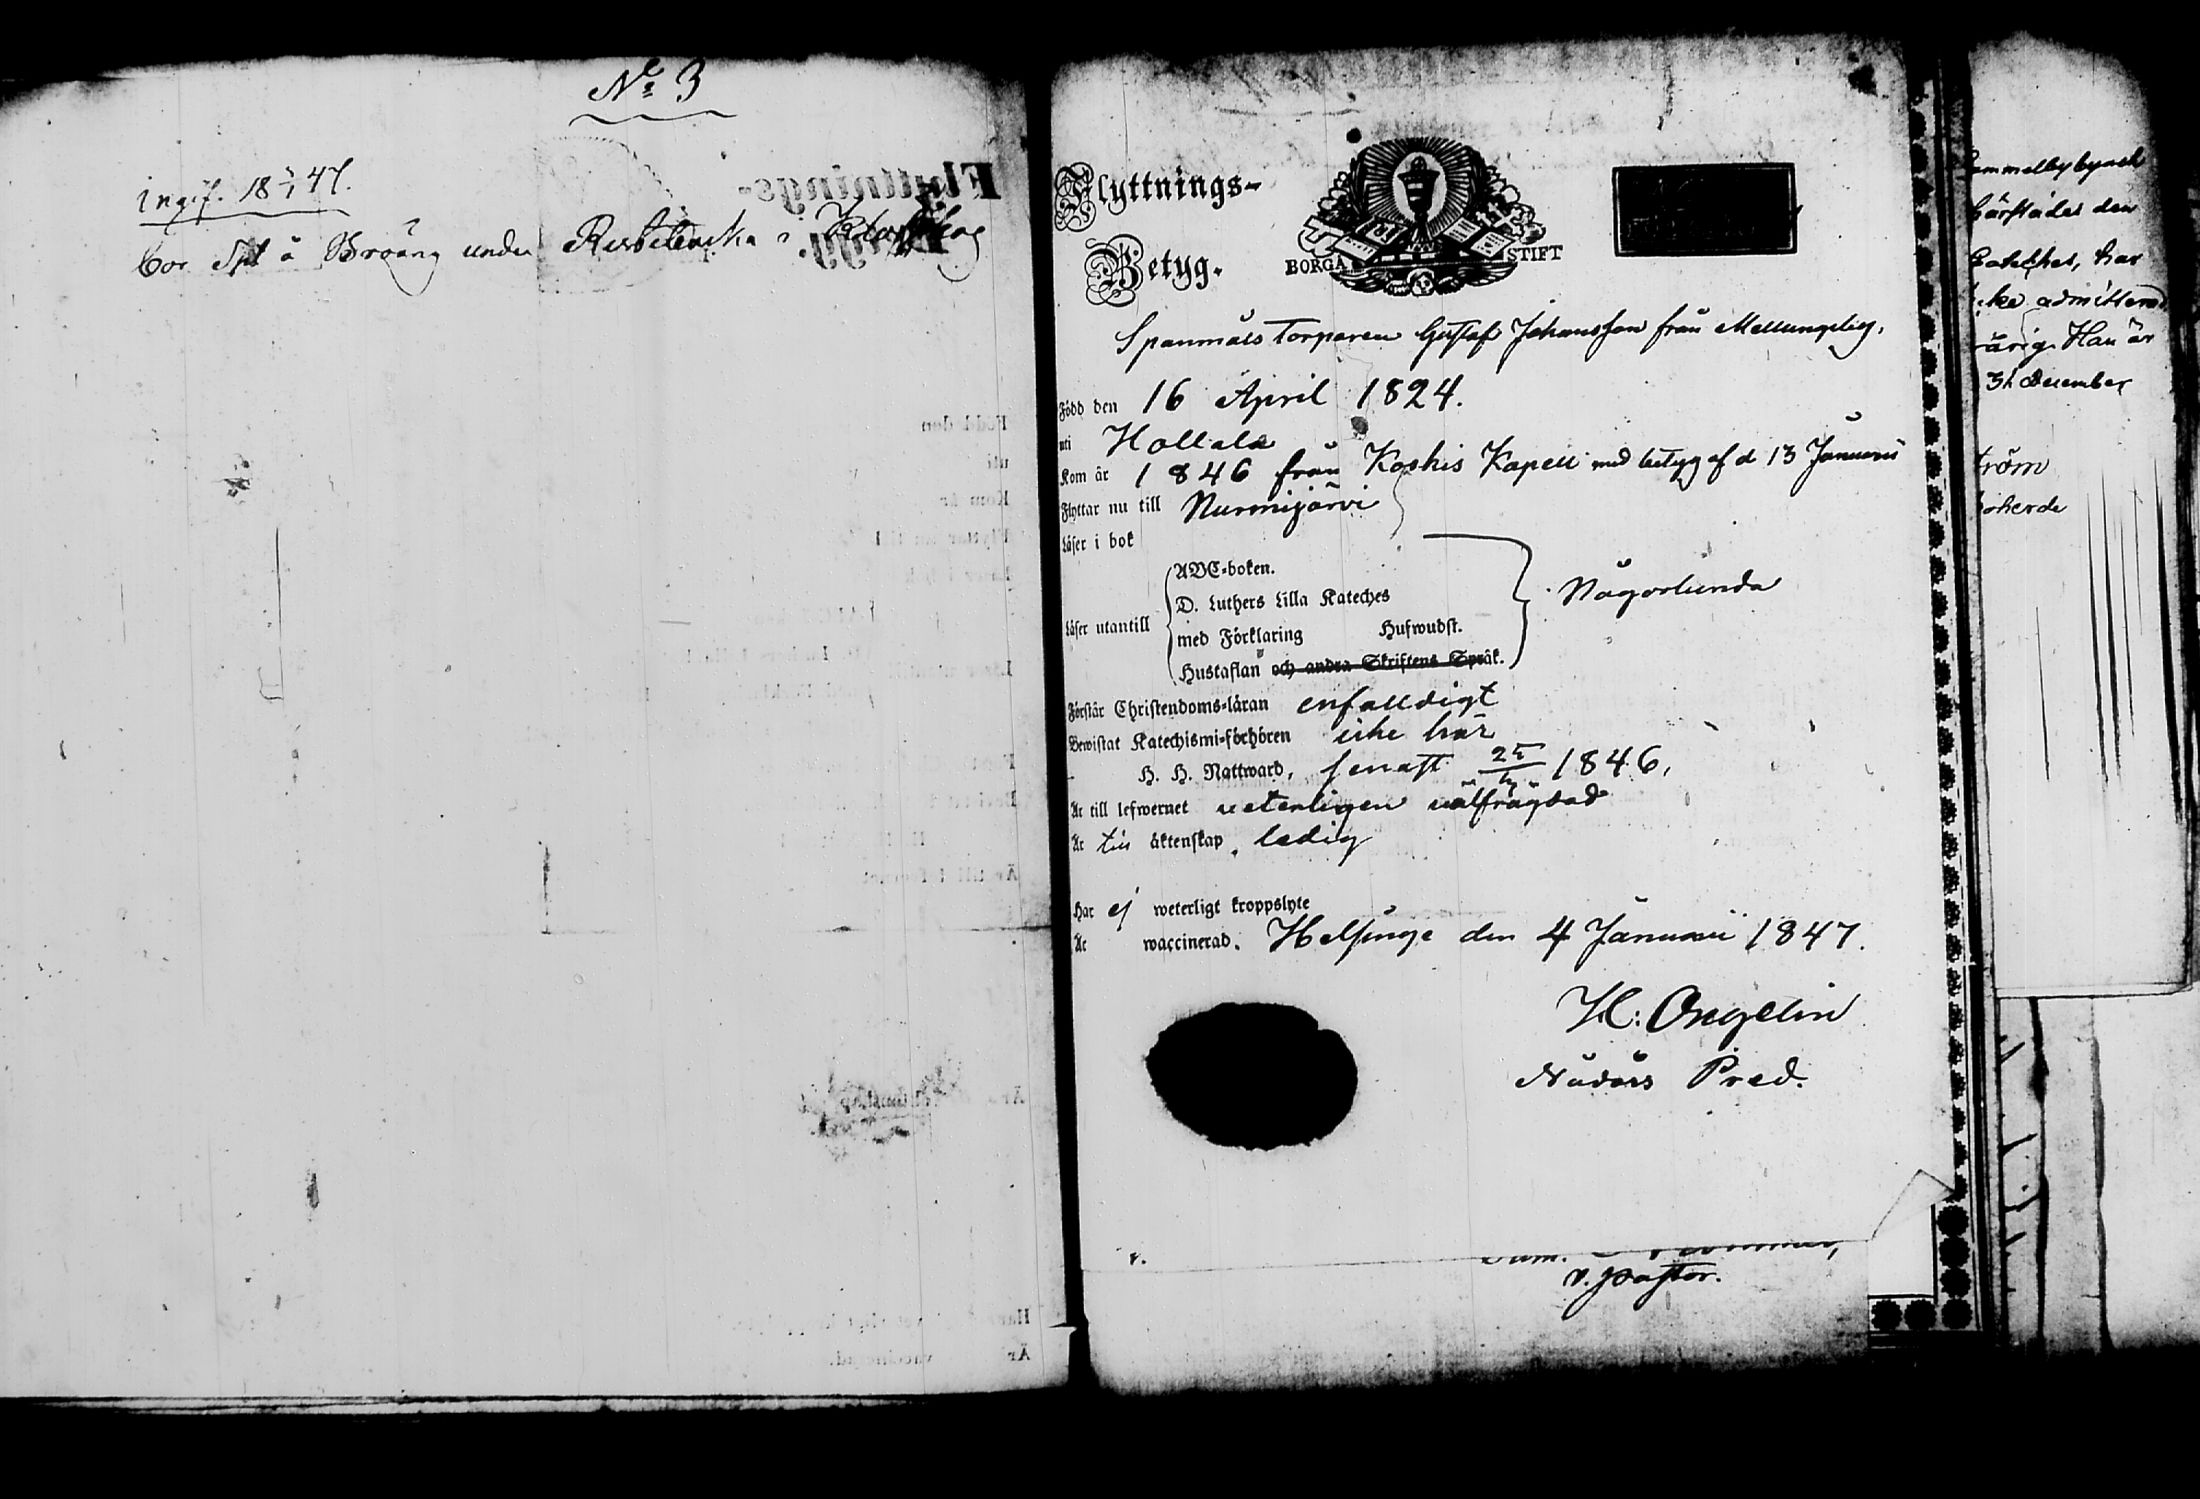 No 3
ingif. 18 47.
Bor Spt å Broäng under i
Flyttnings-
Betyg.
BORGÅ STIFT
Spanmåls Torparen Gustaf Johansson från Mellungsby,
Född den 16 April 1824.
uti Hollola
Kom år 1846 från Koskis Kapell med betyg af d 13 Januarii
Flyttar nu till Nurmijärvi
Läser i bok
Läser utantill
ABC-boken.
D. Luthers Lilla Kateches
med Förklaring Hufwudst.
Hustaflan och andra Skriftens Språk.
Någorlunda
Förstår Christendoms-läran enfalldigt
Bewistat Katechismi-förhören icke här
H. H. Nattward, senast 1846,
Är till lefwernet veterligen välfrägdad
Är till äktenskap ledig
Har ej weterligt kroppslyte
Är waccinerad. Helsinge den 4 Januarii 1847.
H: Ongelin
Nådårs Pred.
v. pastor.
härstädes den
Kateches, har
icke admitterad
Han är
31 December
ström